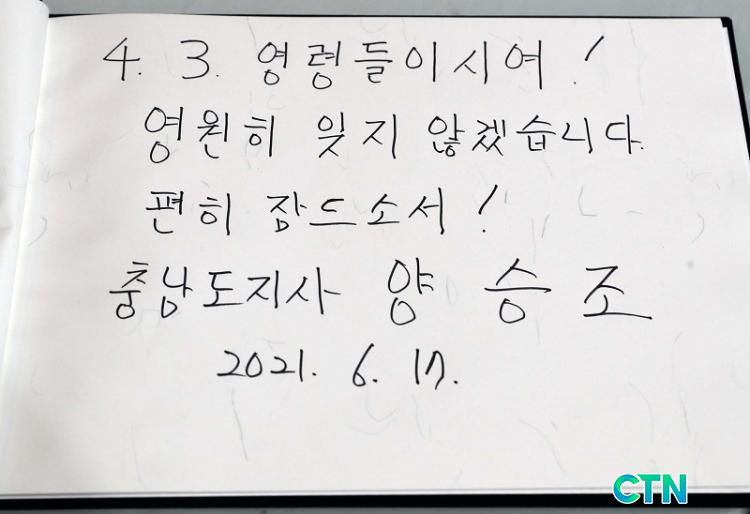 4. 3. 영령들이시여!
영원히 잊지 않겠습니다.
편히 잠드소서!
충남도지사 양승조
2021. 6. 17.
CTN